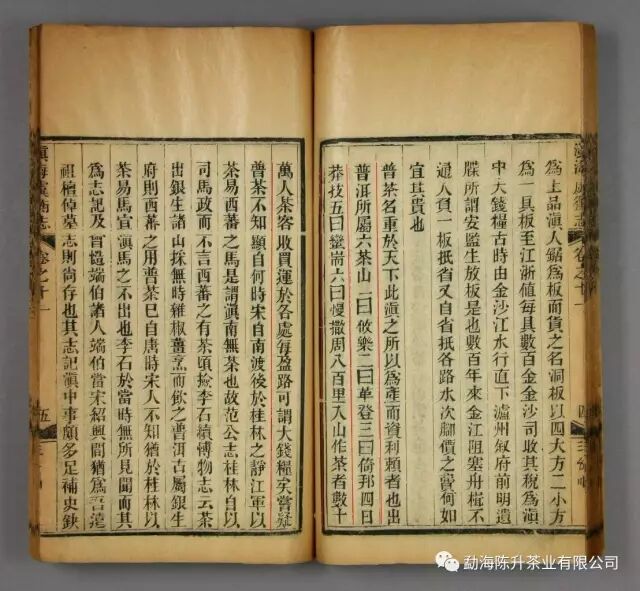 滇海虞衡志 卷之十一 四
為上品滇人鋸為板而貨之名洞板以四大方二小方
為一具板至江浙值每具數百金金沙司收其稅為滇
中大錢糧古時由金沙江水行直下瀘州敘府前明遺
牒所謂安監生放板是也數百年來金江阻塞舟楫不
通人負一板抵省又自省抵各路水次腳價之費何如
宜其貴也
普茶名重於天下此滇之所以為產而資利賴者也出
普洱所屬六茶山一曰攸樂二曰革登三曰倚邦四曰
莽枝五曰蠻耑六曰慢撒周八百里入山作茶者數十
萬人茶客收買運於各處每盈路可謂大錢糧矣嘗疑
普茶不知顯自何時宋自南渡後於桂林之靜江軍以
茶易西蕃之馬是謂滇南無茶也故范公志桂林自以
司馬政而不言西蕃之有茶頃撿李石續博物志云茶
出銀生諸山採無時雜椒薑烹而飲之普洱古屬銀生
府則西蕃之用普茶已自唐時宋人不知猶於桂林以
茶易馬宜滇馬之不出也李石於當時無所見聞而其
為志記及曾慥端伯諸人端伯當宋紹興間猶為吾遠
祖檀倬墓志則尚存也其志記滇中事頗多足補史缺
滇海虞衡志 卷之十一 五
勐海陈升茶业有限公司